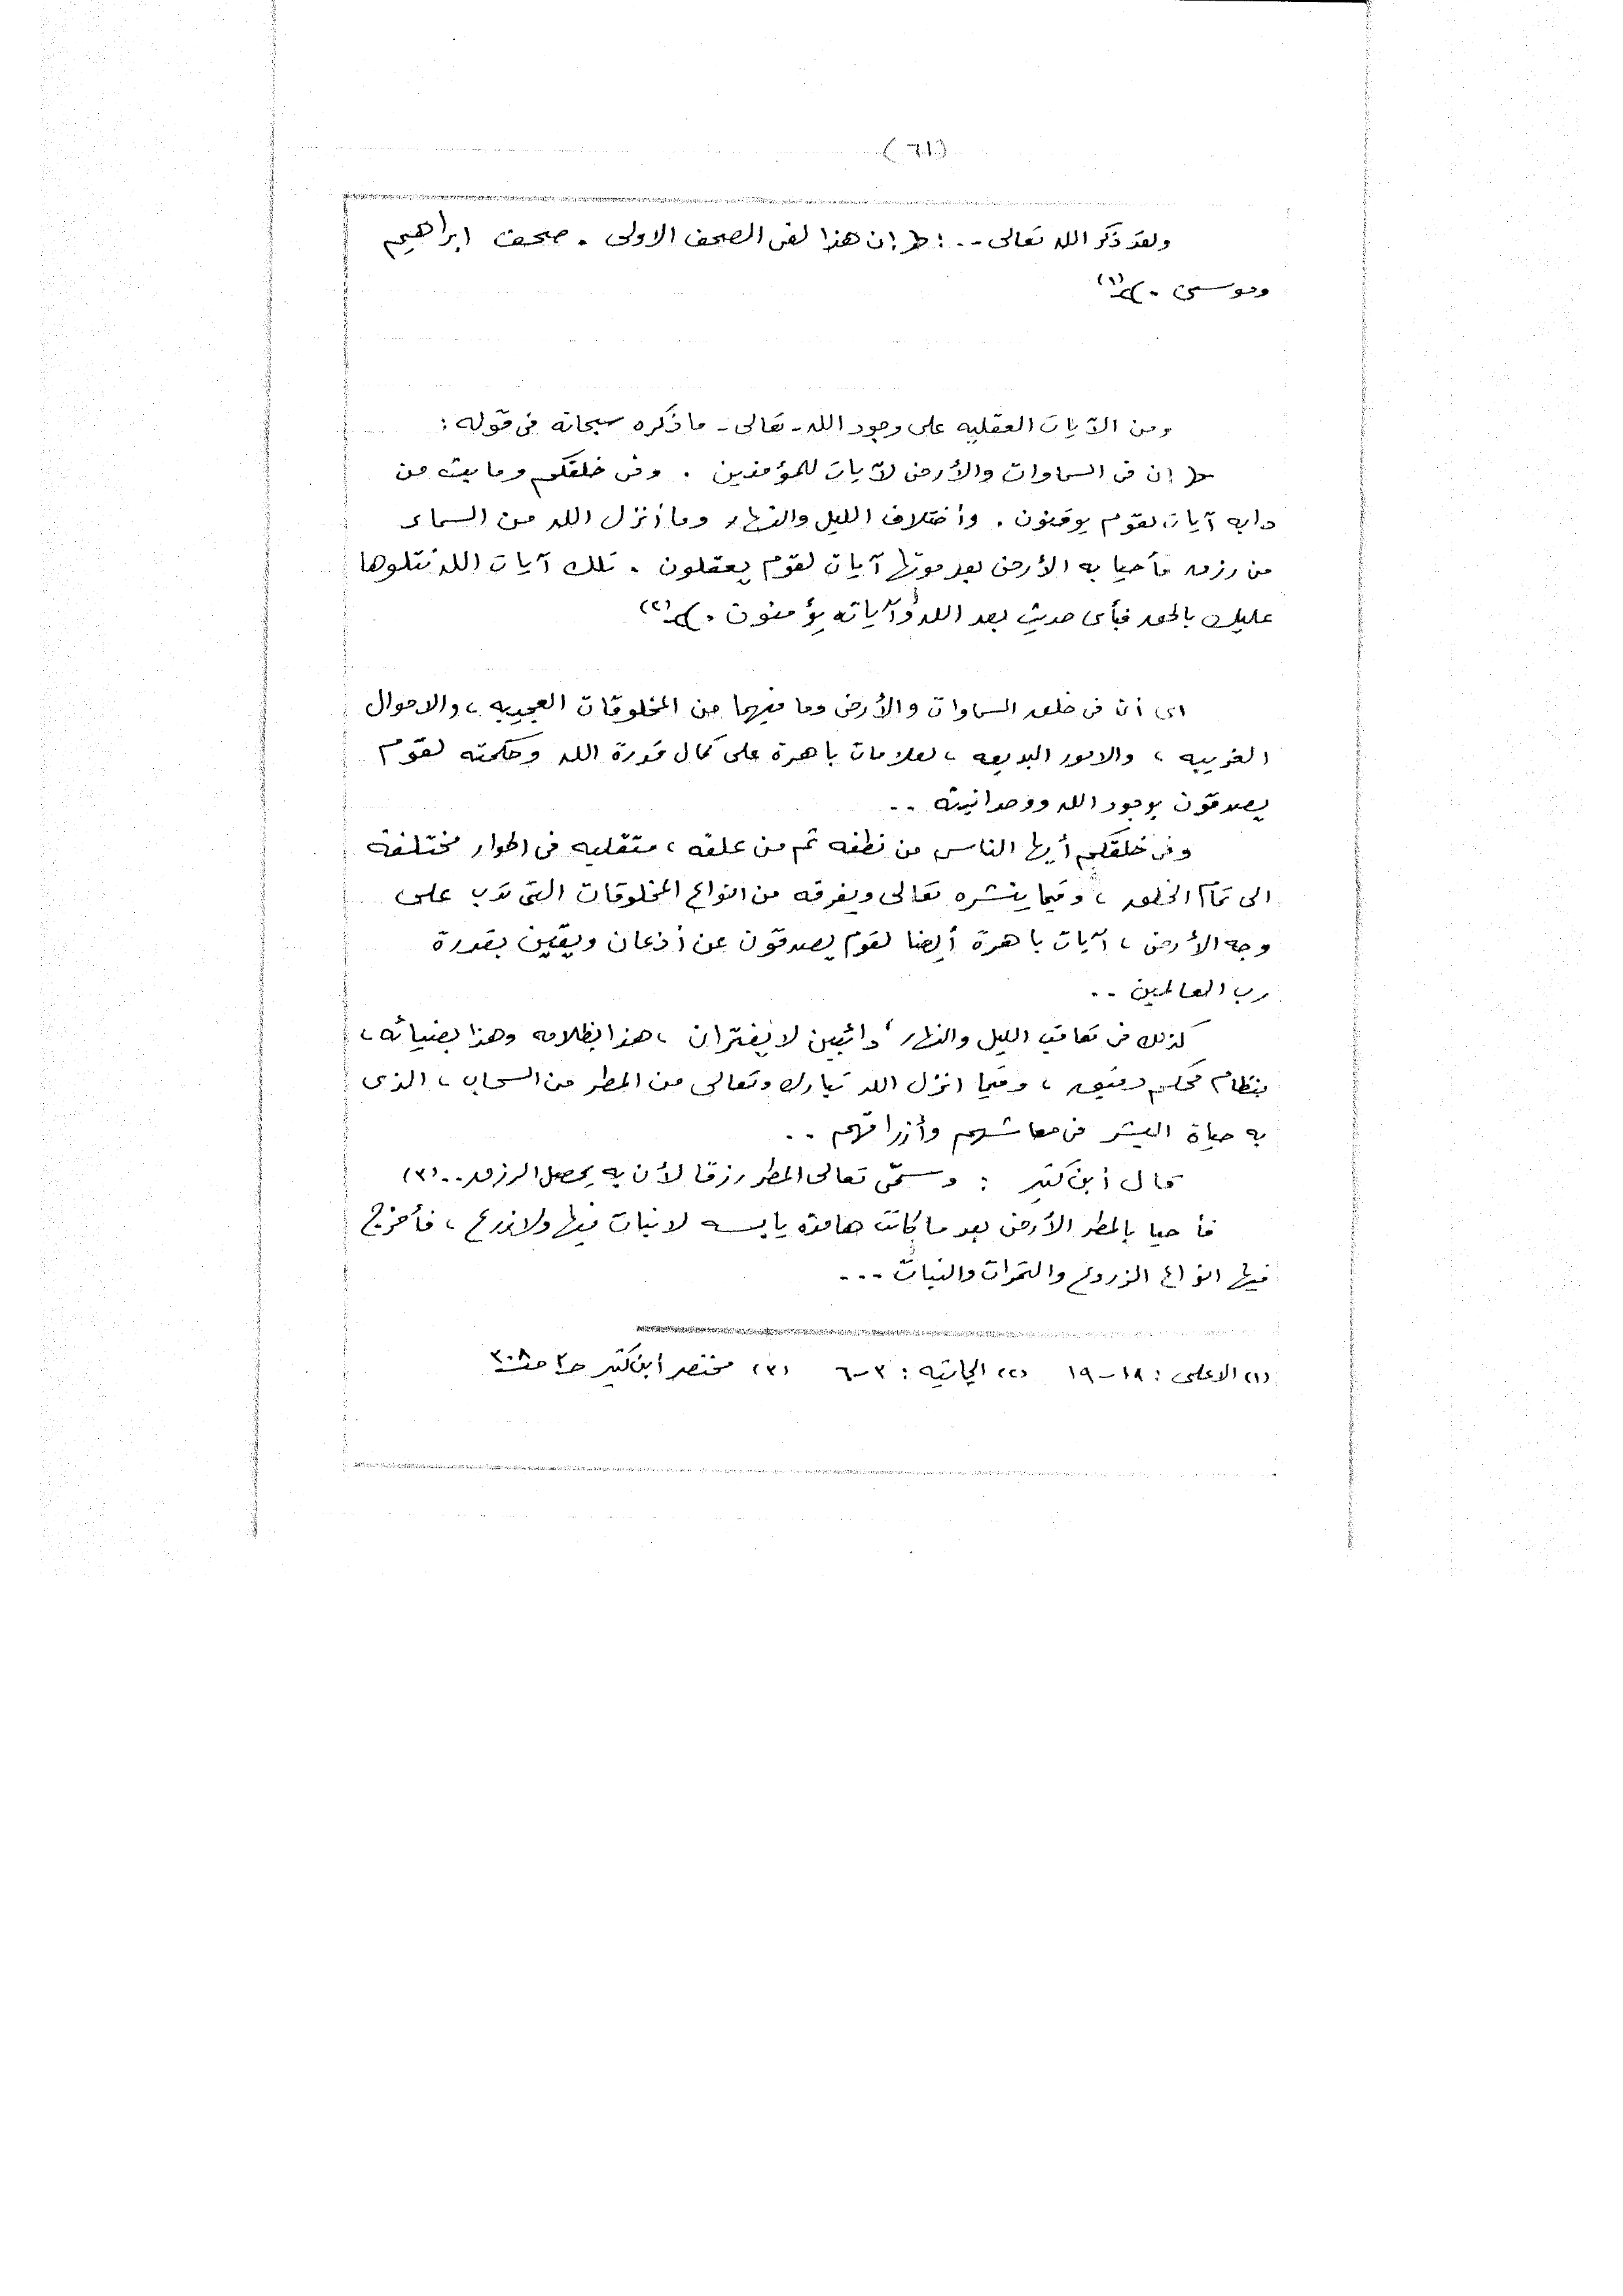 (٦١)
ولقد ذكر الله تعالى .. : ﴿ إن هذا لفى الصحف الاولى . صحف ابراهيم
وموسى . ﴾ (١)
ومن الآيات العقليه على وجود الله - تعالى - ما ذكره سبحانه فى قوله :
﴿ إن فى السماوات والأرض لآيات للمؤمنين . وفى خلقكم وما يبث من
دابه آيات لقوم يوقنون . وأختلاف الليل والنهار وما أنزل الله من السماء
من رزق فأحيا به الأرض بعد موتها آيات لقوم يعقلون . تلك آيات الله نتلوها
عليك بالحق فبأى حديث بعد الله وآياته يؤمنون . ﴾ (٢)
اى أن فى خلق السماوات والأرض وما فيهما من المخلوقات العجيبه ، والاحوال
الغريبه ، والامور البديعه ، لعلامات باهرة على كمال قدرة الله وحكمته لقوم
يصدقون بوجود الله ووحدانيته ..
وفى خلقكم أيها الناس من نطفه ثم من علقه ، متقلبه فى اطوار مختلفة
الى تمام الخلق ، وفيما ينشره تعالى ويفرقه من انواع المخلوقات التى تدب على
وجه الأرض ، آيات باهرة أيضا لقوم يصدقون عن أذعان ويقين بقدرة
رب العالمين ..
كذلك فى تعاقب الليل والنهار ، دائبين لا يفتران ، هذا بظلامه وهذا بضيائه ،
بنظام محكم دقيق ، وفيما انزل الله تبارك وتعالى من المطر من السحاب ، الذى
به حياة البشر فى معاشهم وأزراقهم ..
قال أبن كثير : وسمّى تعالى المطر رزقا لأن به يحصل الرزق .. (٣)
فأحيا بالمطر الأرض بعد ما كانت هامدة يابسه لا نبات فيها ولا زرع ، فأخرج
فيها انواع الزروع والثمرات والنبات ...
(١) الاعلى : ١٨ - ١٩ (٢) الجاثيه : ٣ - ٦ (٣) مختصر أبن كثير ح٣ ص٣٠٨